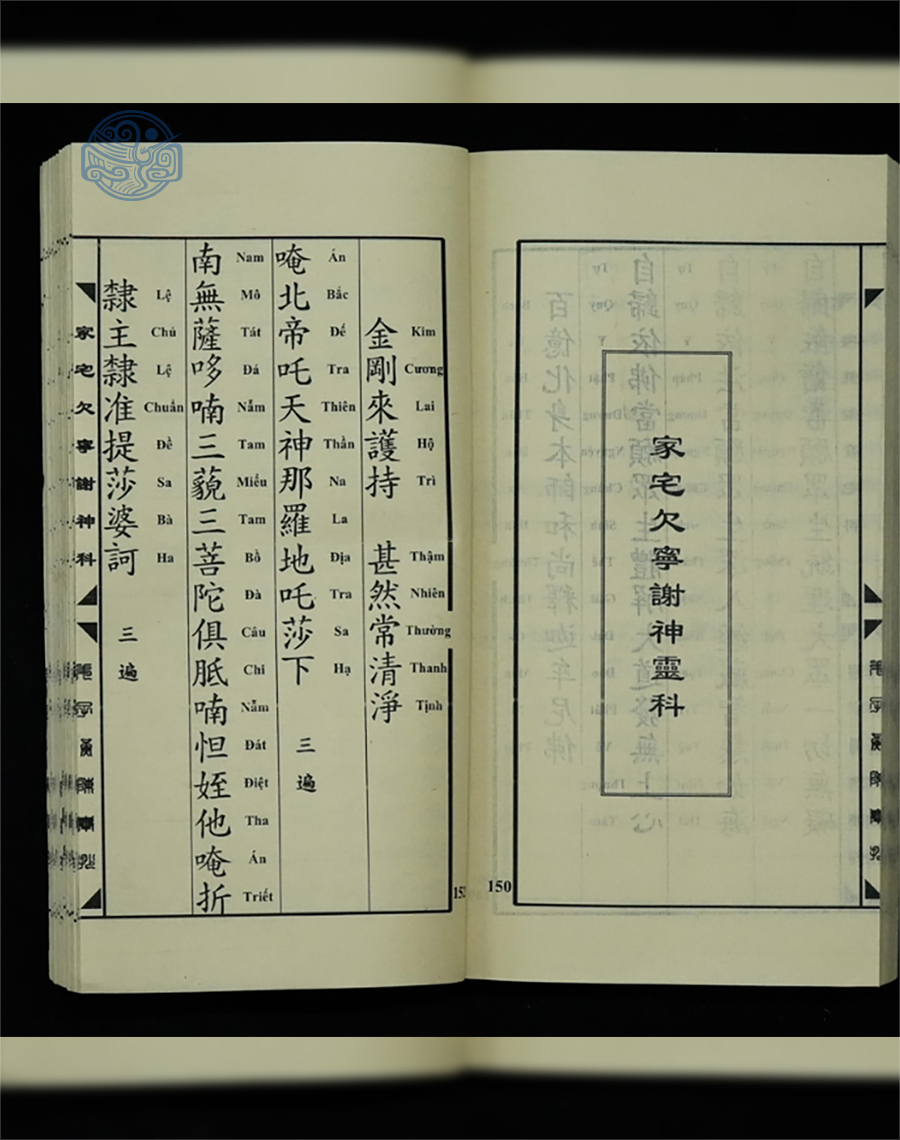 家宅欠寧謝神靈科
150
金剛來護持 甚然常清淨
Kim Cương Lai Hộ Trì Thậm Nhiên Thường Thanh Tịnh
唵北帝吒天神那羅地吒莎下 三遍
Án Bắc Đế Tra Thiên Thần Na La Địa Tra Sa Hạ
南無薩哆喃三藐三菩陀俱胝喃怛姪他唵折
Nam Mô Tát Đá Nẫm Tam Miểu Tam Bồ Đà Câu Chi Nẫm Đát Điệt Tha Án Triết
隸主隸准提莎婆訶 三遍
Lệ Chủ Lệ Chuẩn Đề Sa Bà Ha
家宅欠寧謝神科